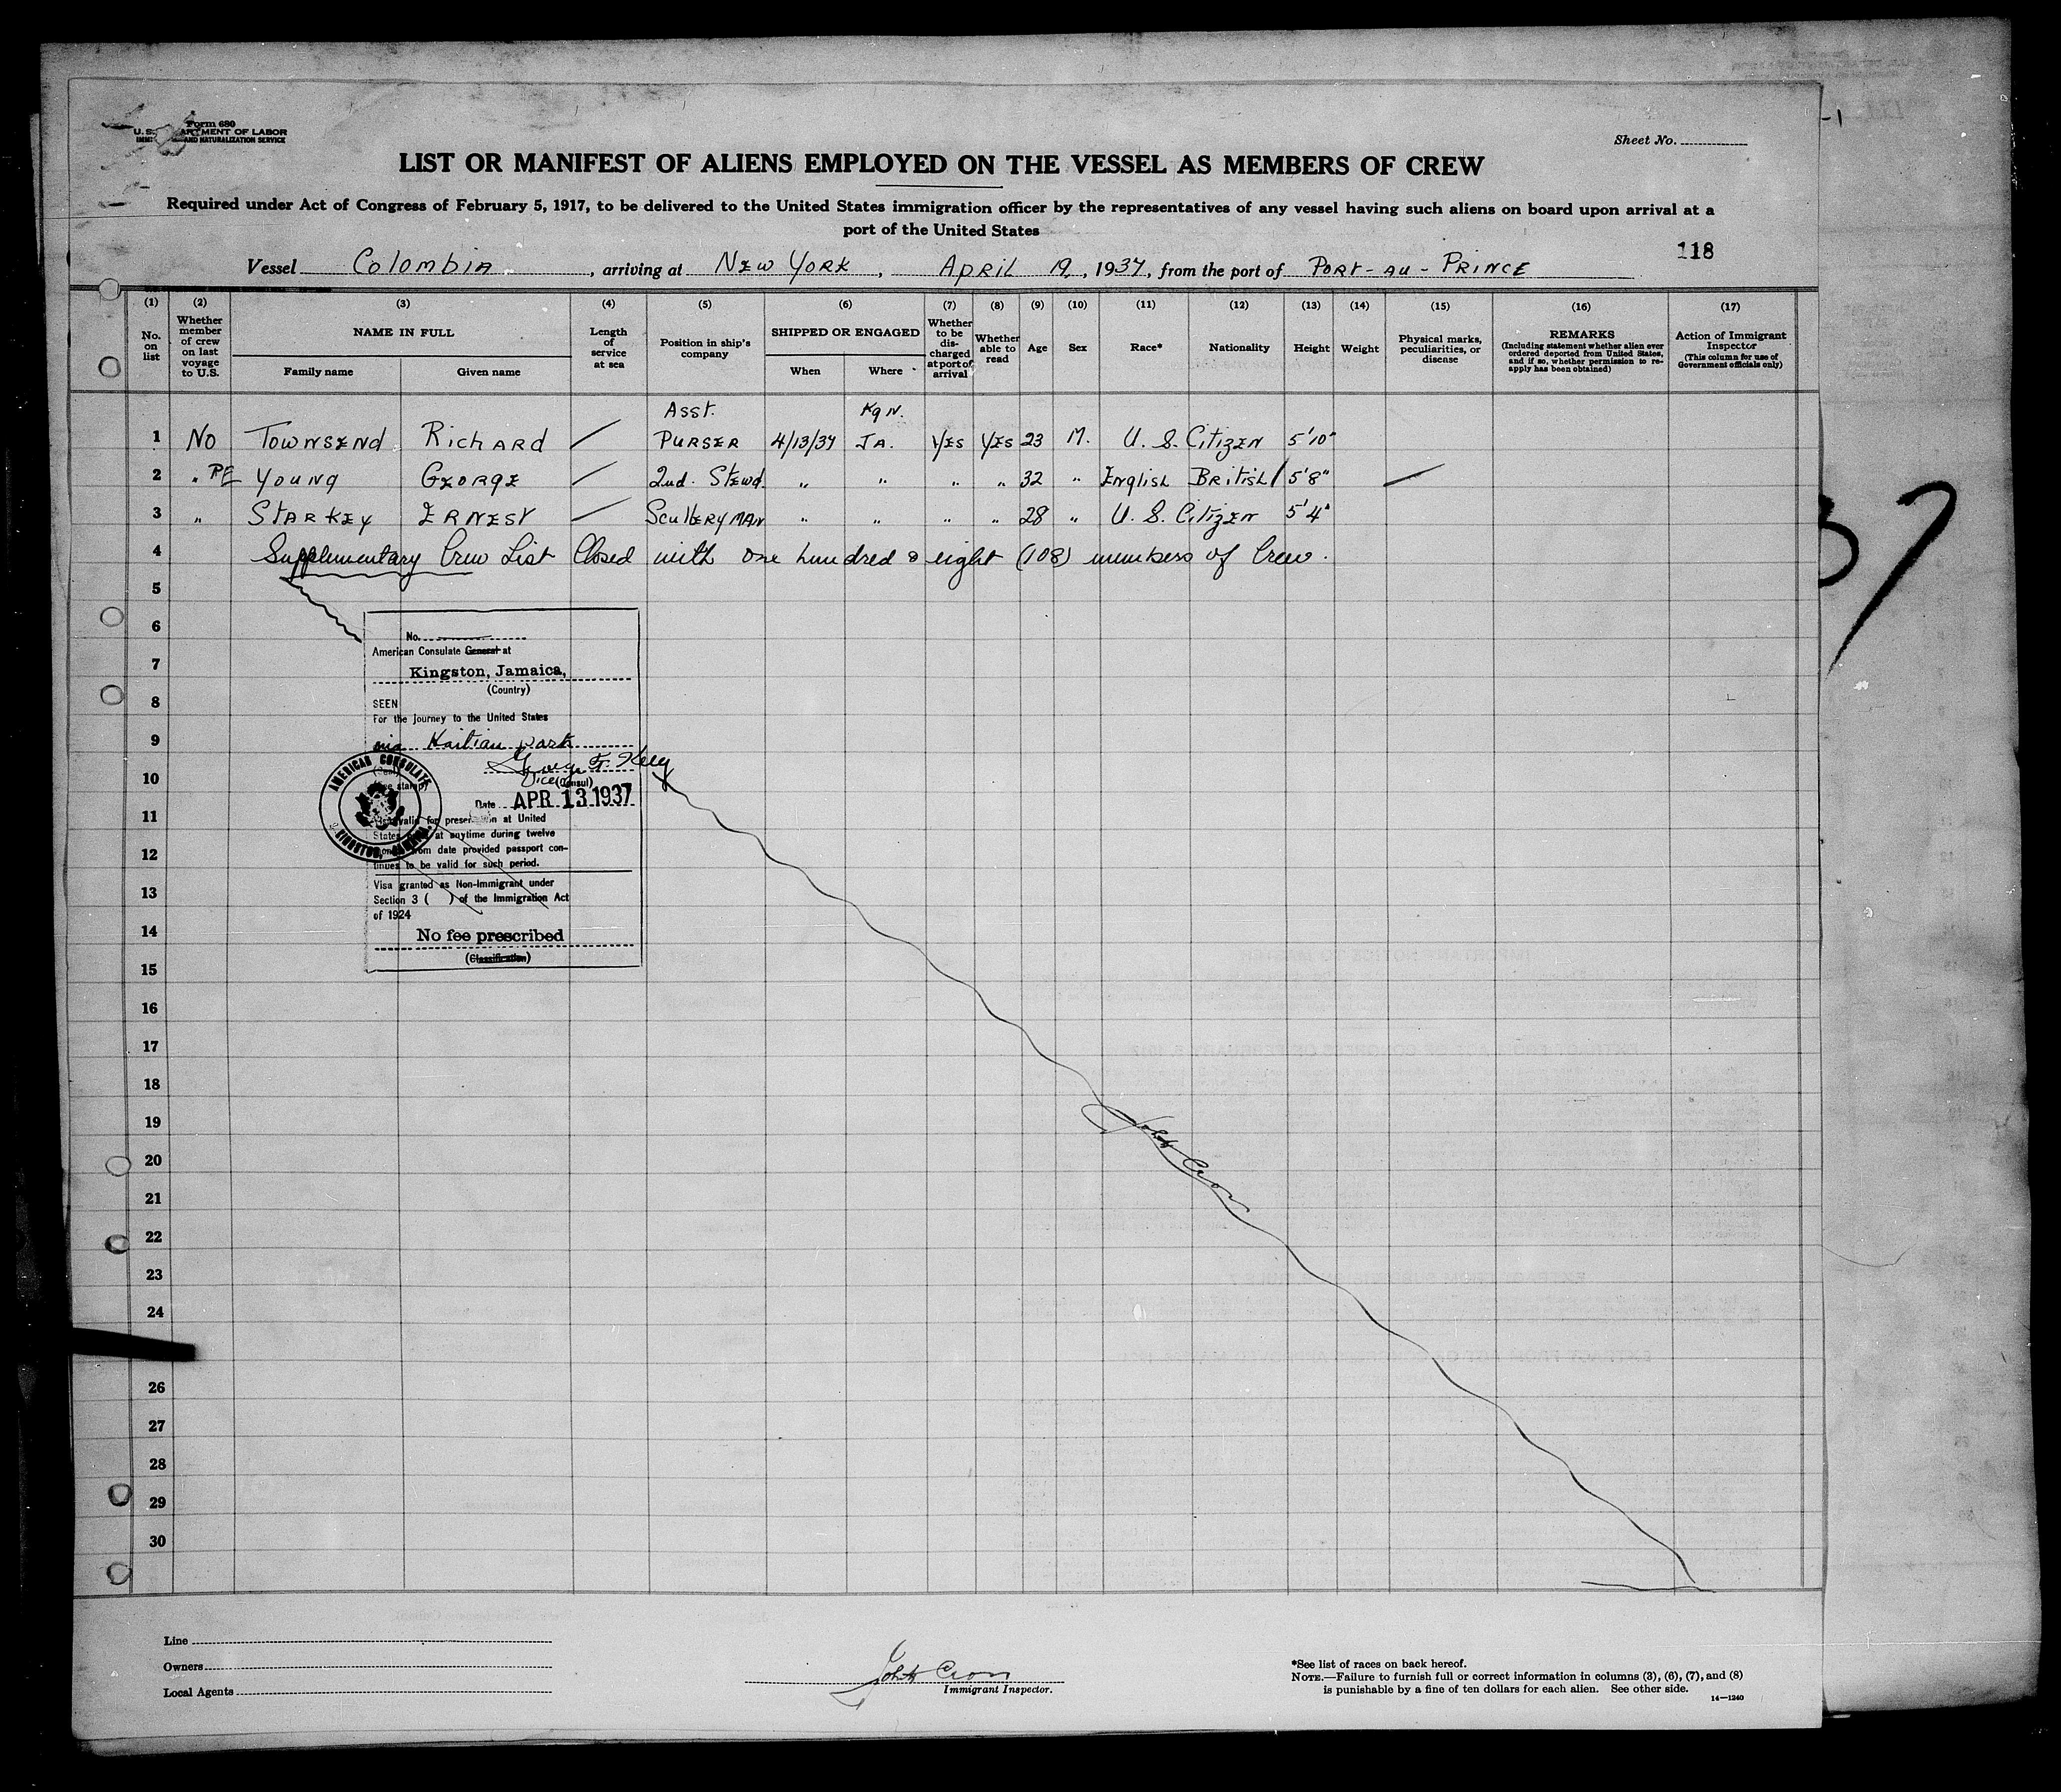 Form 680
U. S. DEPARTMENT OF LABOR
AND NATURALIZATION SERVICE
Sheet No.
LIST OR MANIFEST OF ALIENS EMPLOYED ON THE VESSEL AS MEMBERS OF CREW
Required under Act of Congress of February 5, 1917, to be delivered to the United States immigration officer by the representatives of any vessel having such aliens on board upon arrival at a
port of the United States
118
Vessel Colombia, arriving at New York, April 19, 1937, from the port of Port-au-Prince
(1) (2) (3) (4) (5) (6) (7) (8) (9) (10) (11) (12) (13) (14) (15) (16) (17)
No. on list
Whether member of crew on last voyage to U.S.
NAME IN FULL
Family name
Given name
Length of service at sea
Position in ship's company
SHIPPED OR ENGAGED
When
Where
Whether to be discharged at port of arrival
Whether able to read
Age
Sex
Race*
Nationality
Height
Weight
Physical marks, peculiarities, or disease
REMARKS
(Including statement whether alien ever ordered deported from United States, and if so, whether permission to reapply has been obtained)
Action of Immigrant Inspector
(This column for use of Government officials only)
Asst. Kgn.
1 No Townsend Richard / Purser 4/13/37 JA. Yes Yes 23 M. U. S. Citizen 5'10"
2 " PE Young George / 2nd. Stewd. " " " " 32 " English British 5'8" /
3 " Starkey Ernest / Sculleryman " " " " 28 " U. S. Citizen 5'4"
4 Supplementary Crew List Closed with one hundred & eight (108) members of Crew.
5
6
7
8
9
10
11
12
13
14
15
16
17
18
19
20
21
22
23
24
26
27
28
29
30
No.
American Consulate General at
Kingston, Jamaica,
(Country)
SEEN
For the journey to the United States
via Haitian port
Vice (Consul)
Date APR 13 1937
AMERICAN CONSULATE
KINGSTON, JAMAICA
valid for presentation at United
States at anytime during twelve
from date provided passport con-
tinues to be valid for such period.
Visa granted as Non-Immigrant under
Section 3 ( ) of the Immigration Act
of 1924
No fee prescribed
(Classification)
37
Line
Owners
Local Agents
Immigrant Inspector.
*See list of races on back hereof.
NOTE.—Failure to furnish full or correct information in columns (3), (6), (7), and (8)
is punishable by a fine of ten dollars for each alien. See other side.
14—1240